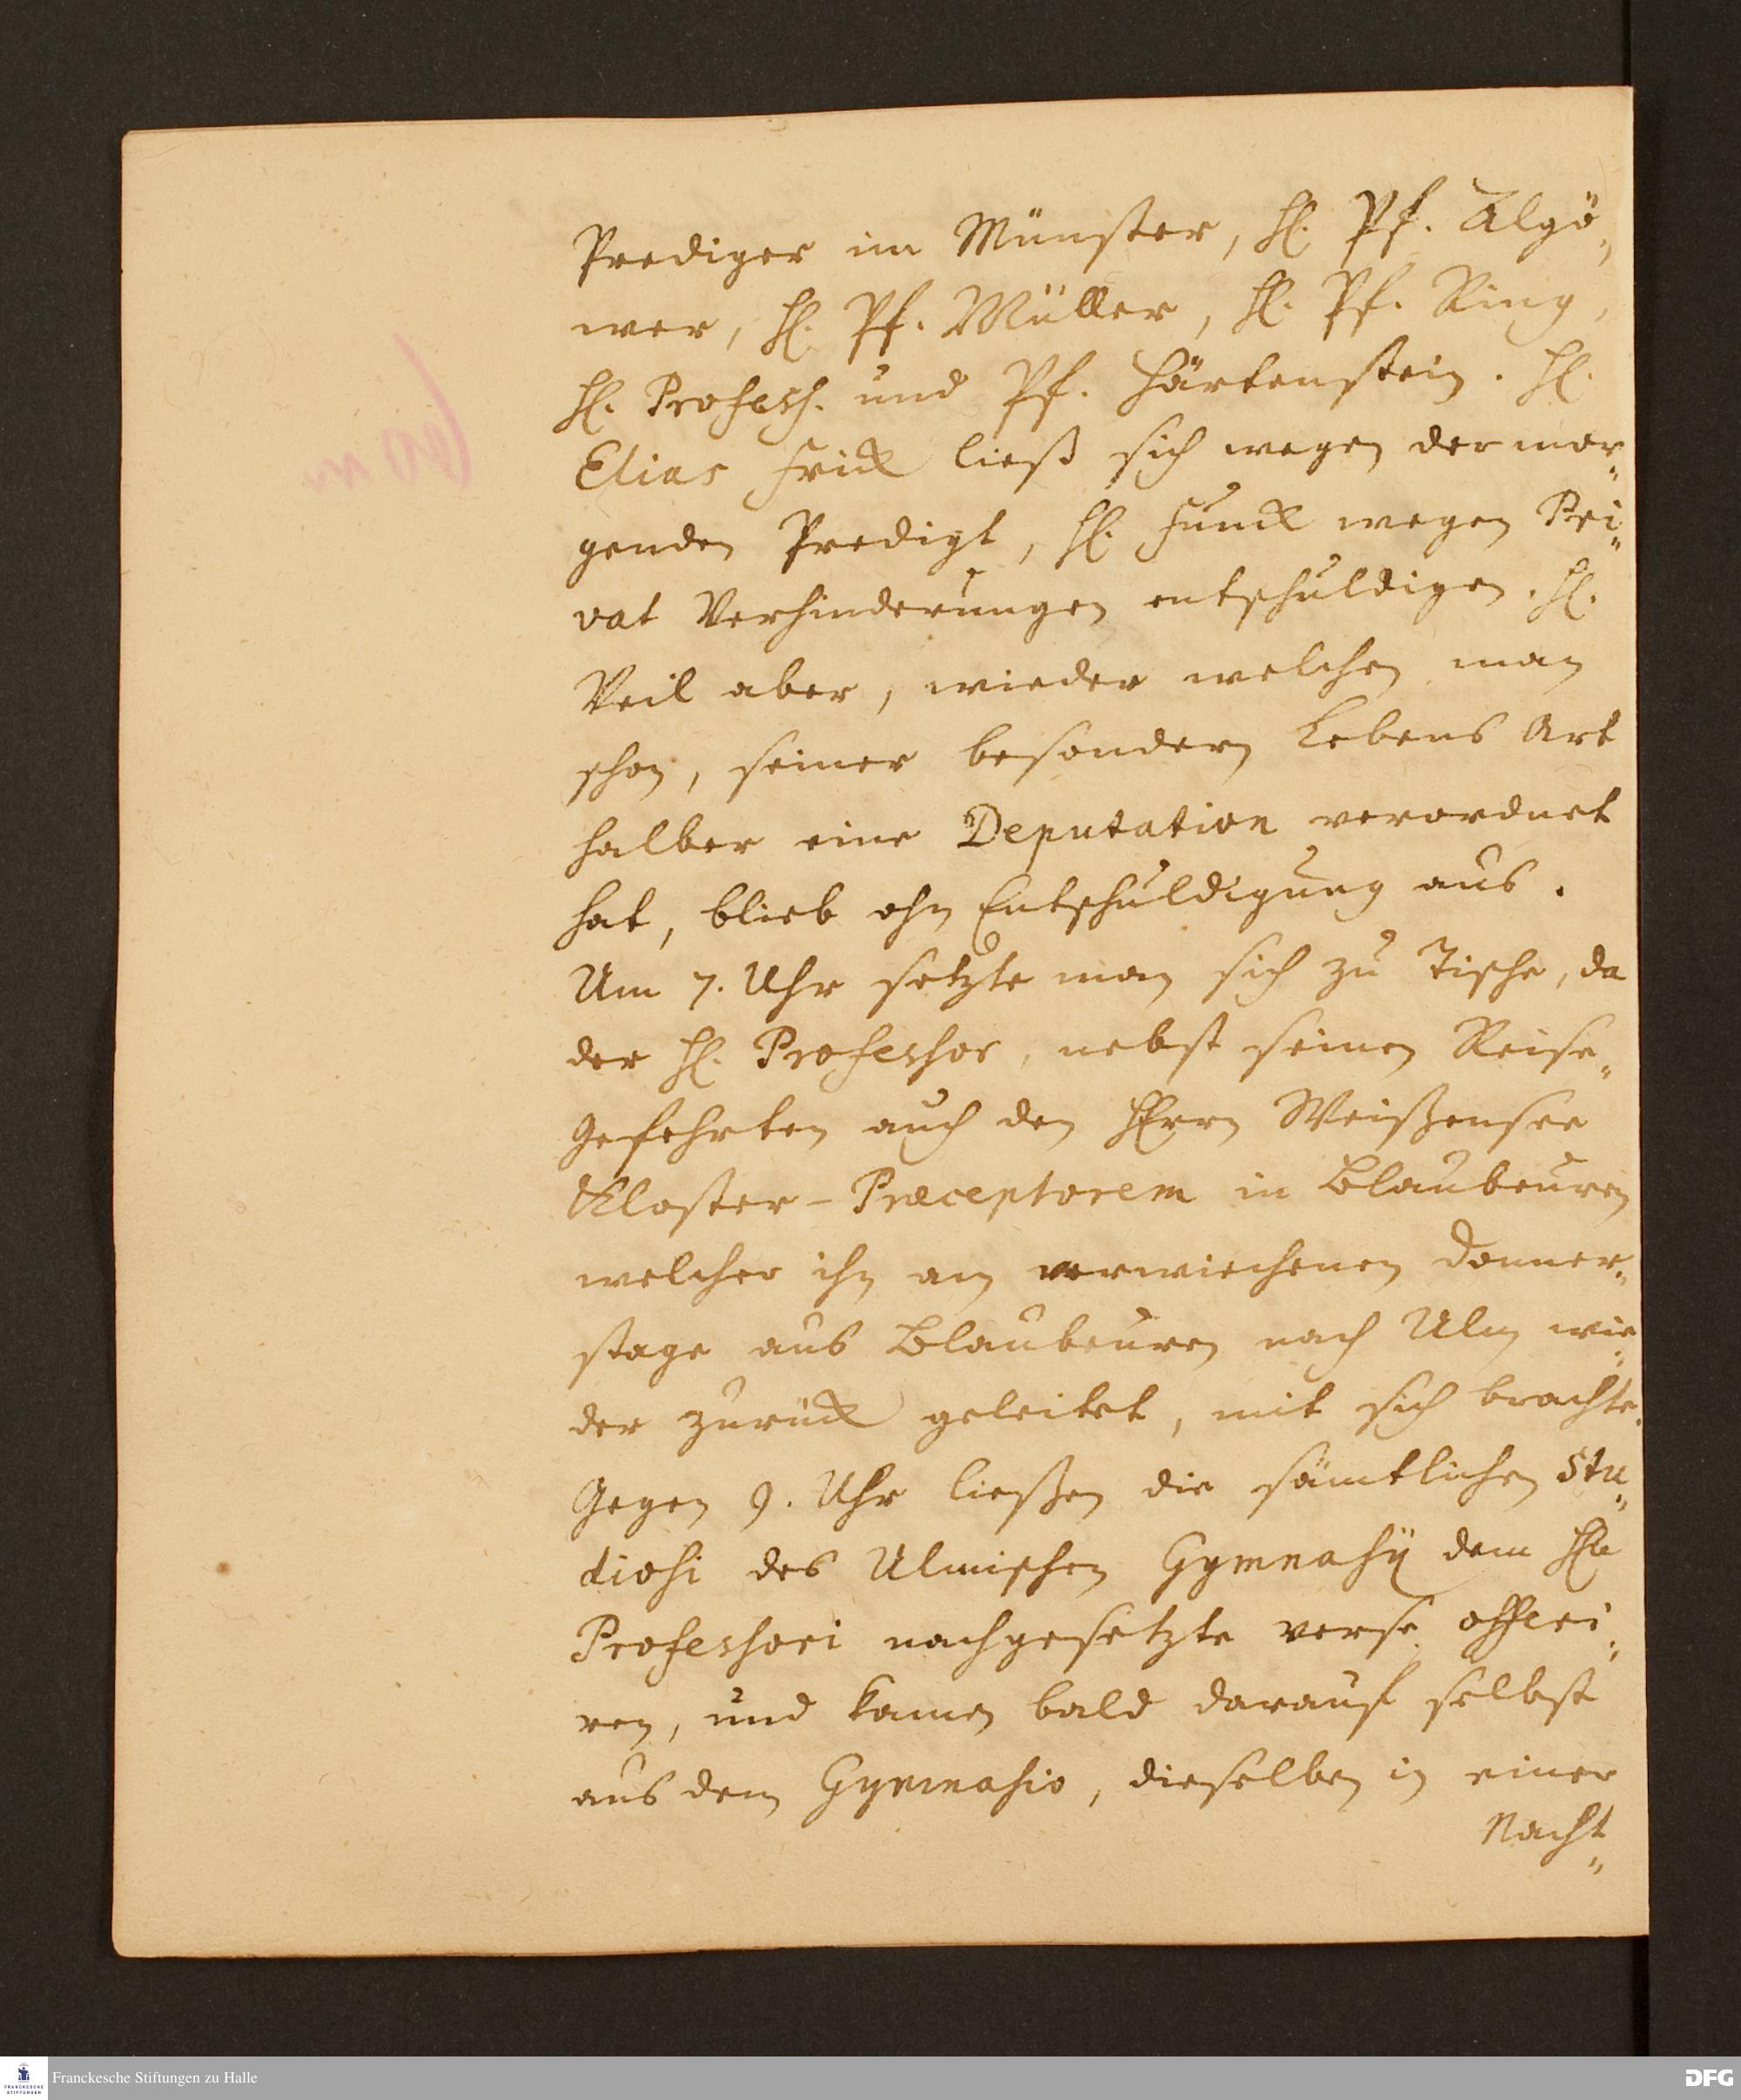 Prediger im Münster, H. Pf. Algö„
wer, H. Pf. Müller, H. Pf. Ring,
H. Profess. und Pf. Härtenstein. H.
Elias Frick ließ sich wegen der mor„
genden Predigt, H. Funck wegen Pri„
vat Verhinderungen entschuldigen. H.
Veil aber, wieder welchen man
schon, seiner besondern Lebens Art
halber eine Deputation verordnet
hat, blieb ohn Entschuldigung aus.
Um 7. Uhr setzte man sich zu Tische, da
der H. Professor, nebst seinen Reise„
Gefehrten auch den Herrn Weißensee
Kloster-Præceptorem in Blaubeuren
welcher ihn am verwichenen Donner„
stage aus Blaubeuren nach Ulm wie„
der zurück geleitet, mit sich brachte.
Gegen 9. Uhr ließen die sämtlichen Stu„
diosi des Ulmischen Gymnasÿ dem Hn
Professori nachgesetzte verse offeri„
ren, und kamen bald darauf selbst
aus dem Gymnasio, dieselben in einer
Nacht„
Franckesche Stiftungen zu Halle
FRANCKESCHE STIFTUNGEN
DFG